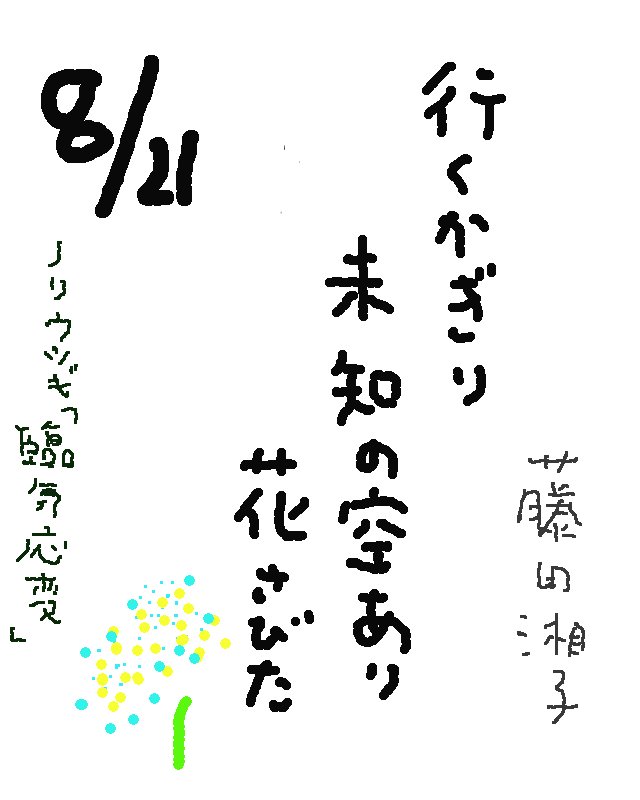 行くかぎり
未知の空あり
花さびた
藤田湘子
8/21
ノリウツギ「臨気応変」